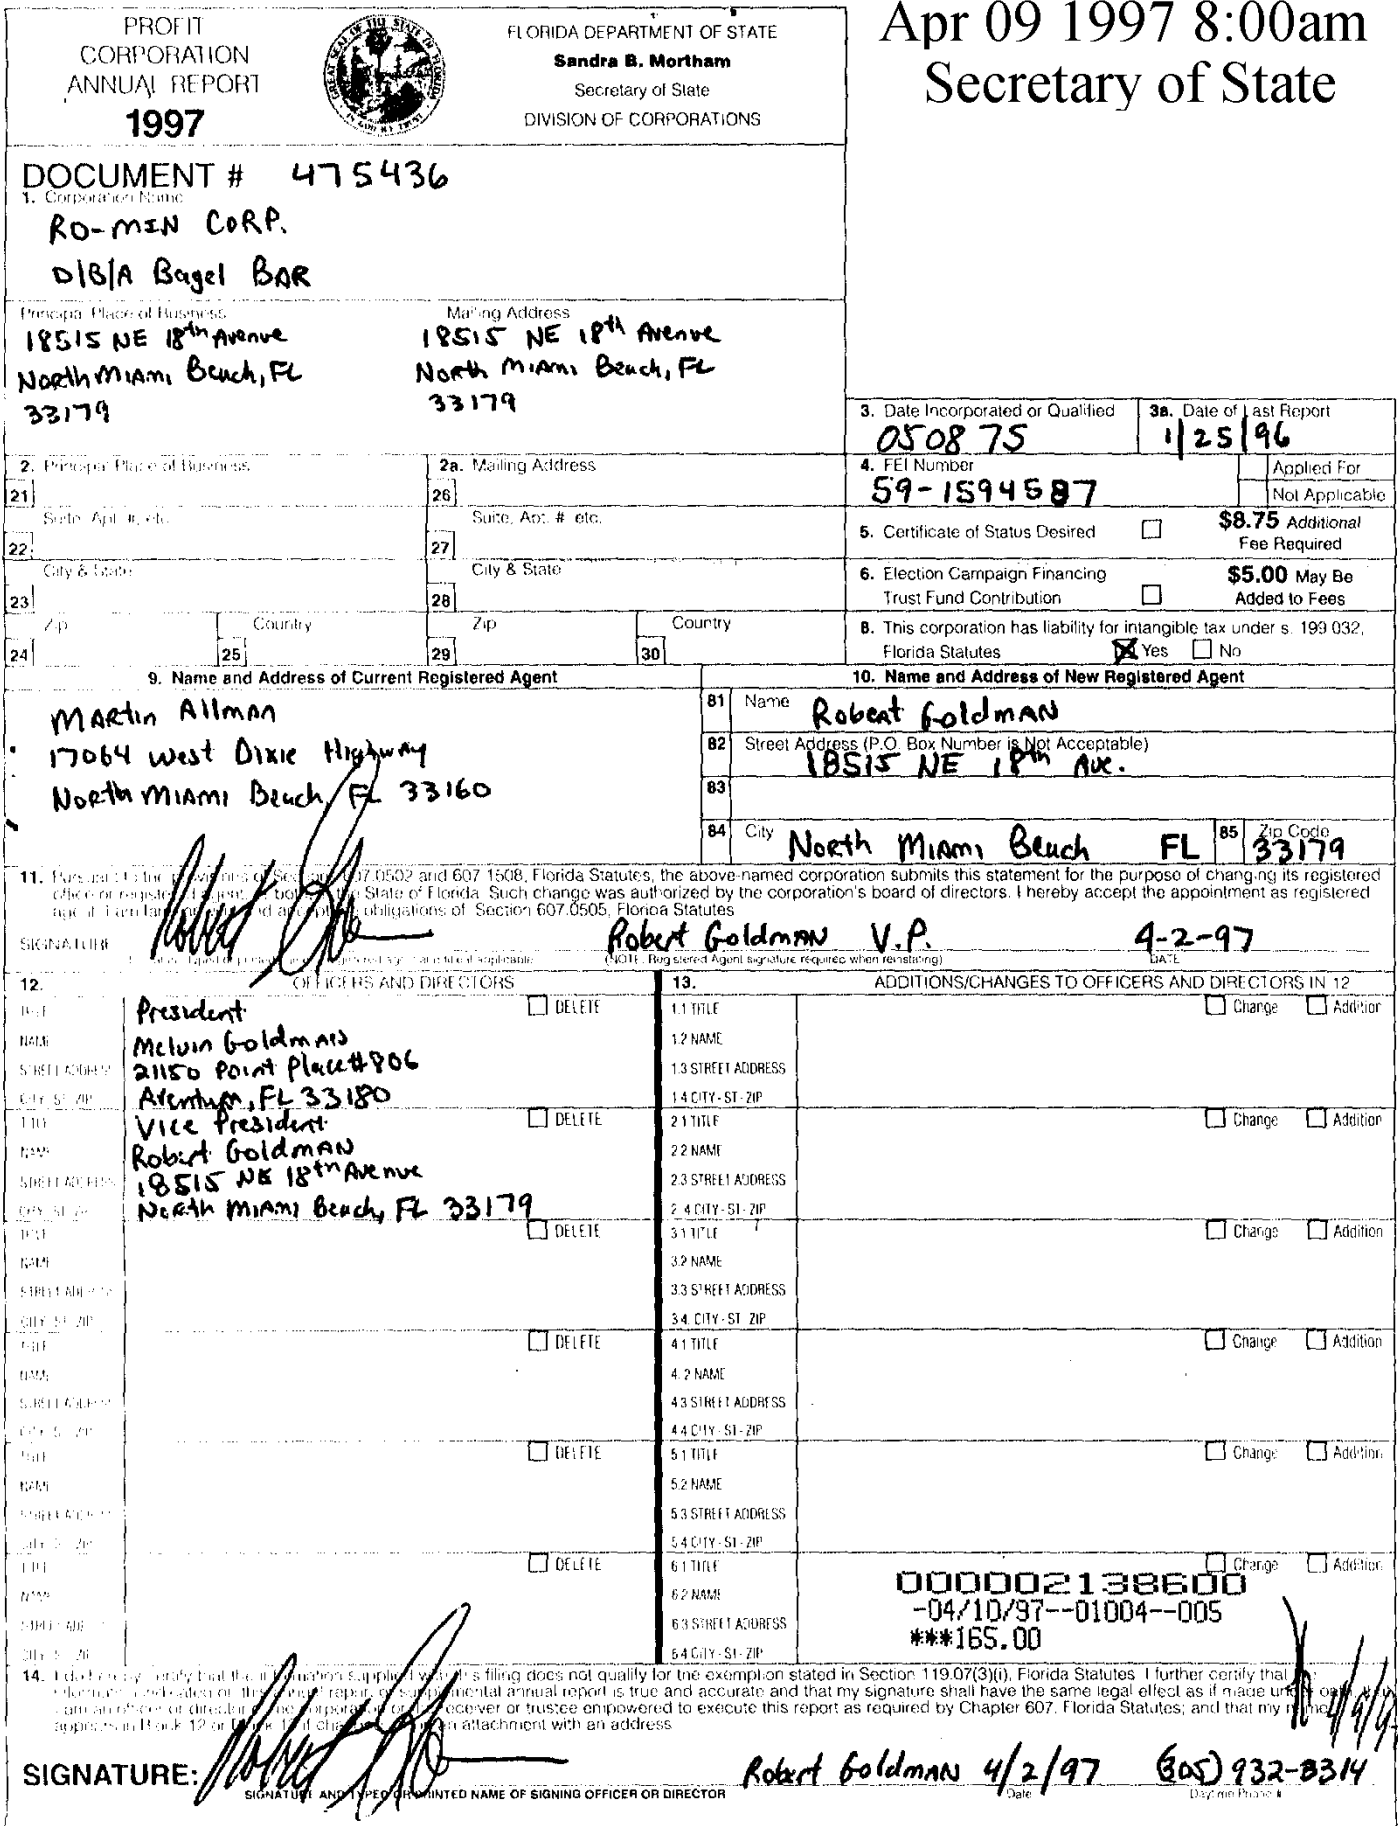 PROFIT
CORPORATION
ANNUAL REPORT
1997
FLORIDA DEPARTMENT OF STATE
Sandra B. Mortham
Secretary of State
DIVISION OF CORPORATIONS
Apr 09 1997 8:00am
Secretary of State
DOCUMENT # 475436
1. Corporation Name
RO-MIN CORP.
D|B|A Bagel BAR
Principal Place of Business
18515 NE 18th Avenue
North Miami Beach, FL
33179
Mailing Address
18515 NE 18th Avenue
North Miami Beach, FL
33179
3. Date Incorporated or Qualified
050875
3a. Date of Last Report
1|25|96
2. Principal Place of Business
2a. Mailing Address
4. FEI Number
59-1594587
Applied For
Not Applicable
21
26
Suite, Apt. #, etc.
Suite, Apt. #, etc.
22
27
5. Certificate of Status Desired
$8.75 Additional
Fee Required
City & State
City & State
23
28
6. Election Campaign Financing
Trust Fund Contribution
$5.00 May Be
Added to Fees
Zip
Country
Zip
Country
24
25
29
30
8. This corporation has liability for intangible tax under s. 199.032,
Florida Statutes
Yes No
9. Name and Address of Current Registered Agent
Martin Allman
17064 West Dixie Highway
North Miami Beach, FL 33160
10. Name and Address of New Registered Agent
81 Name Robert Goldman
82 Street Address (P.O. Box Number is Not Acceptable)
18515 NE 18th Ave.
83
84 City North Miami Beach FL 85 Zip Code 33179
11. Pursuant to the provisions of Sections 607.0502 and 607.1508, Florida Statutes, the above-named corporation submits this statement for the purpose of changing its registered
office or registered agent, or both, in the State of Florida. Such change was authorized by the corporation's board of directors. I hereby accept the appointment as registered
agent. I am familiar with, and accept the obligations of, Section 607.0505, Florida Statutes
SIGNATURE Robert Goldman V.P. 4-2-97
(NOTE: Registered Agent signature required when reinstating)
DATE
12. OFFICERS AND DIRECTORS
13. ADDITIONS/CHANGES TO OFFICERS AND DIRECTORS IN 12
TITLE President DELETE
NAME Melvin Goldman
STREET ADDRESS 21150 Point Place #806
CITY-ST-ZIP Aventura, FL 33180
1.1 TITLE Change Addition
1.2 NAME
1.3 STREET ADDRESS
1.4 CITY-ST-ZIP
TITLE Vice President DELETE
NAME Robert Goldman
STREET ADDRESS 18515 NE 18th Avenue
CITY-ST-ZIP North Miami Beach, FL 33179
2.1 TITLE Change Addition
2.2 NAME
2.3 STREET ADDRESS
2.4 CITY-ST-ZIP
TITLE DELETE
NAME
STREET ADDRESS
CITY-ST-ZIP
3.1 TITLE Change Addition
3.2 NAME
3.3 STREET ADDRESS
3.4. CITY-ST-ZIP
TITLE DELETE
NAME
STREET ADDRESS
CITY-ST-ZIP
4.1 TITLE Change Addition
4.2 NAME
4.3 STREET ADDRESS
4.4 CITY-ST-ZIP
TITLE DELETE
NAME
STREET ADDRESS
CITY-ST-ZIP
5.1 TITLE Change Addition
5.2 NAME
5.3 STREET ADDRESS
5.4 CITY-ST-ZIP
TITLE DELETE
NAME
STREET ADDRESS
CITY-ST-ZIP
6.1 TITLE Change Addition
6.2 NAME
6.3 STREET ADDRESS
6.4 CITY-ST-ZIP
000002138600
-04/10/97--01004--005
***165.00
14. I do hereby certify that the information supplied with this filing does not qualify for the exemption stated in Section 119.07(3)(i), Florida Statutes. I further certify that the
information indicated on this annual report or supplemental annual report is true and accurate and that my signature shall have the same legal effect as if made under oath; that
I am an officer or director of the corporation or the receiver or trustee empowered to execute this report as required by Chapter 607, Florida Statutes; and that my name
appears in Block 12 or Block 13 if changed, or on an attachment with an address
SIGNATURE: Robert Goldman 4/2/97 (305) 932-3314
SIGNATURE AND TYPED OR PRINTED NAME OF SIGNING OFFICER OR DIRECTOR
Date
Daytime Phone #